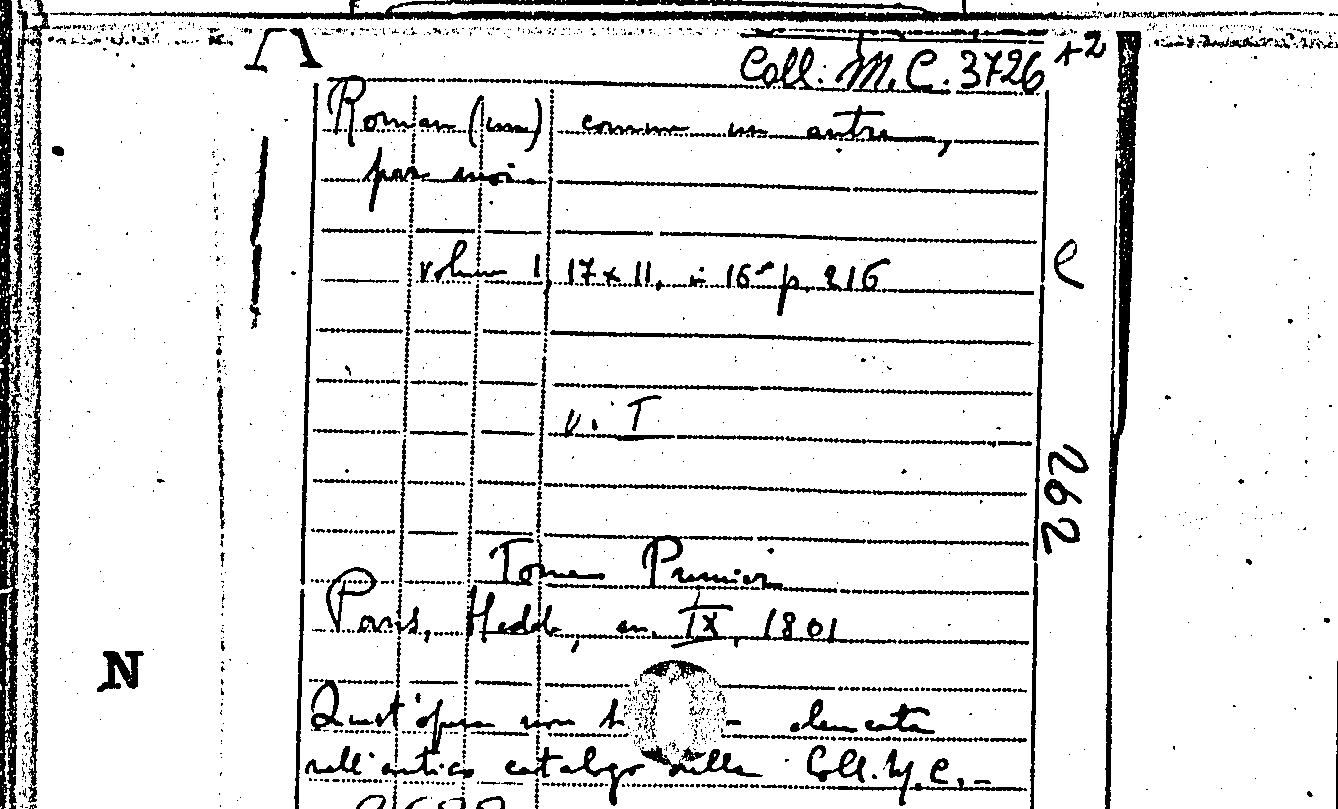 Coll. M. C. 3726 +2
Roman (un) comme un autre,
par moi.
volume 1, 17 x 11, in 16° p. 216
e
v. T
262
Tome Premier
Paris, an. IX, 1801
N
Quest'opera non elencata
nell'antico catalogo della Coll. M. C. -